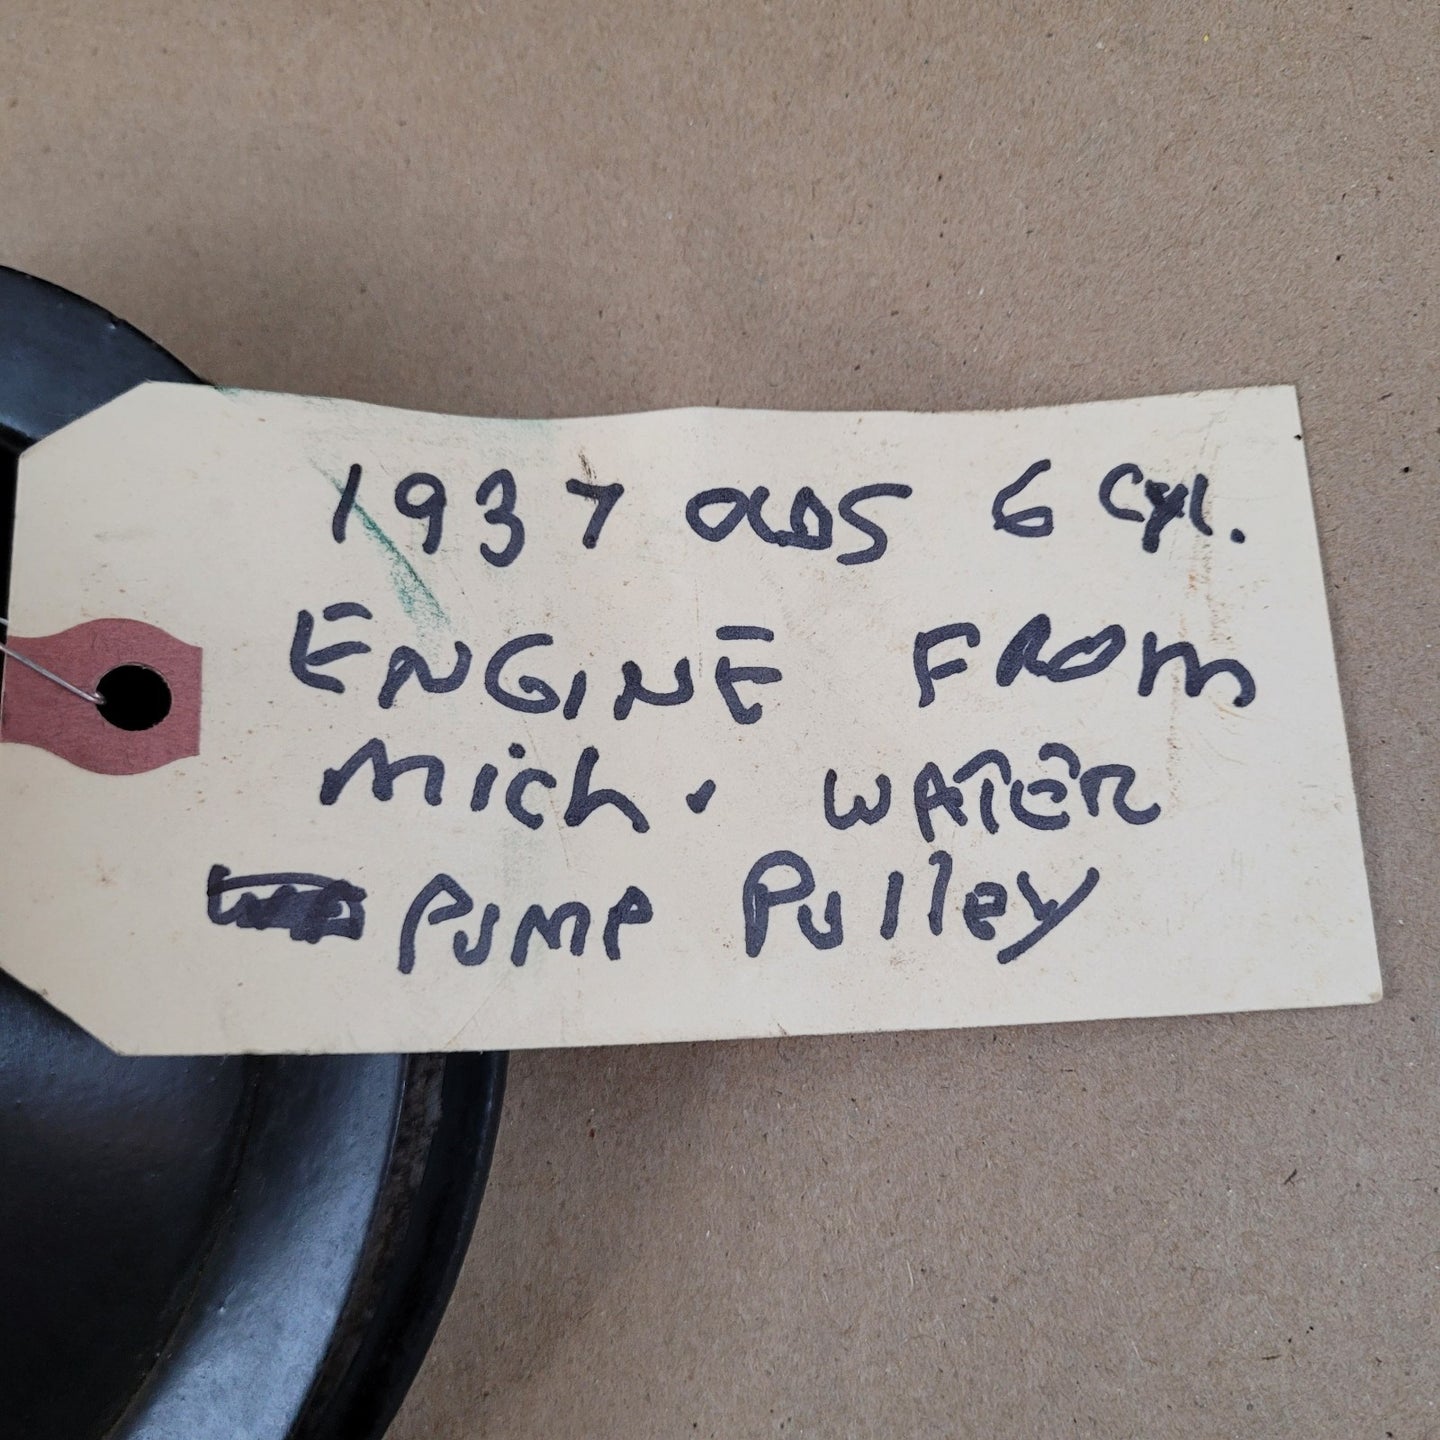 1937 OLDS 6 Cyl.
ENGINE FROM
Mich. WATER
PUMP Pulley